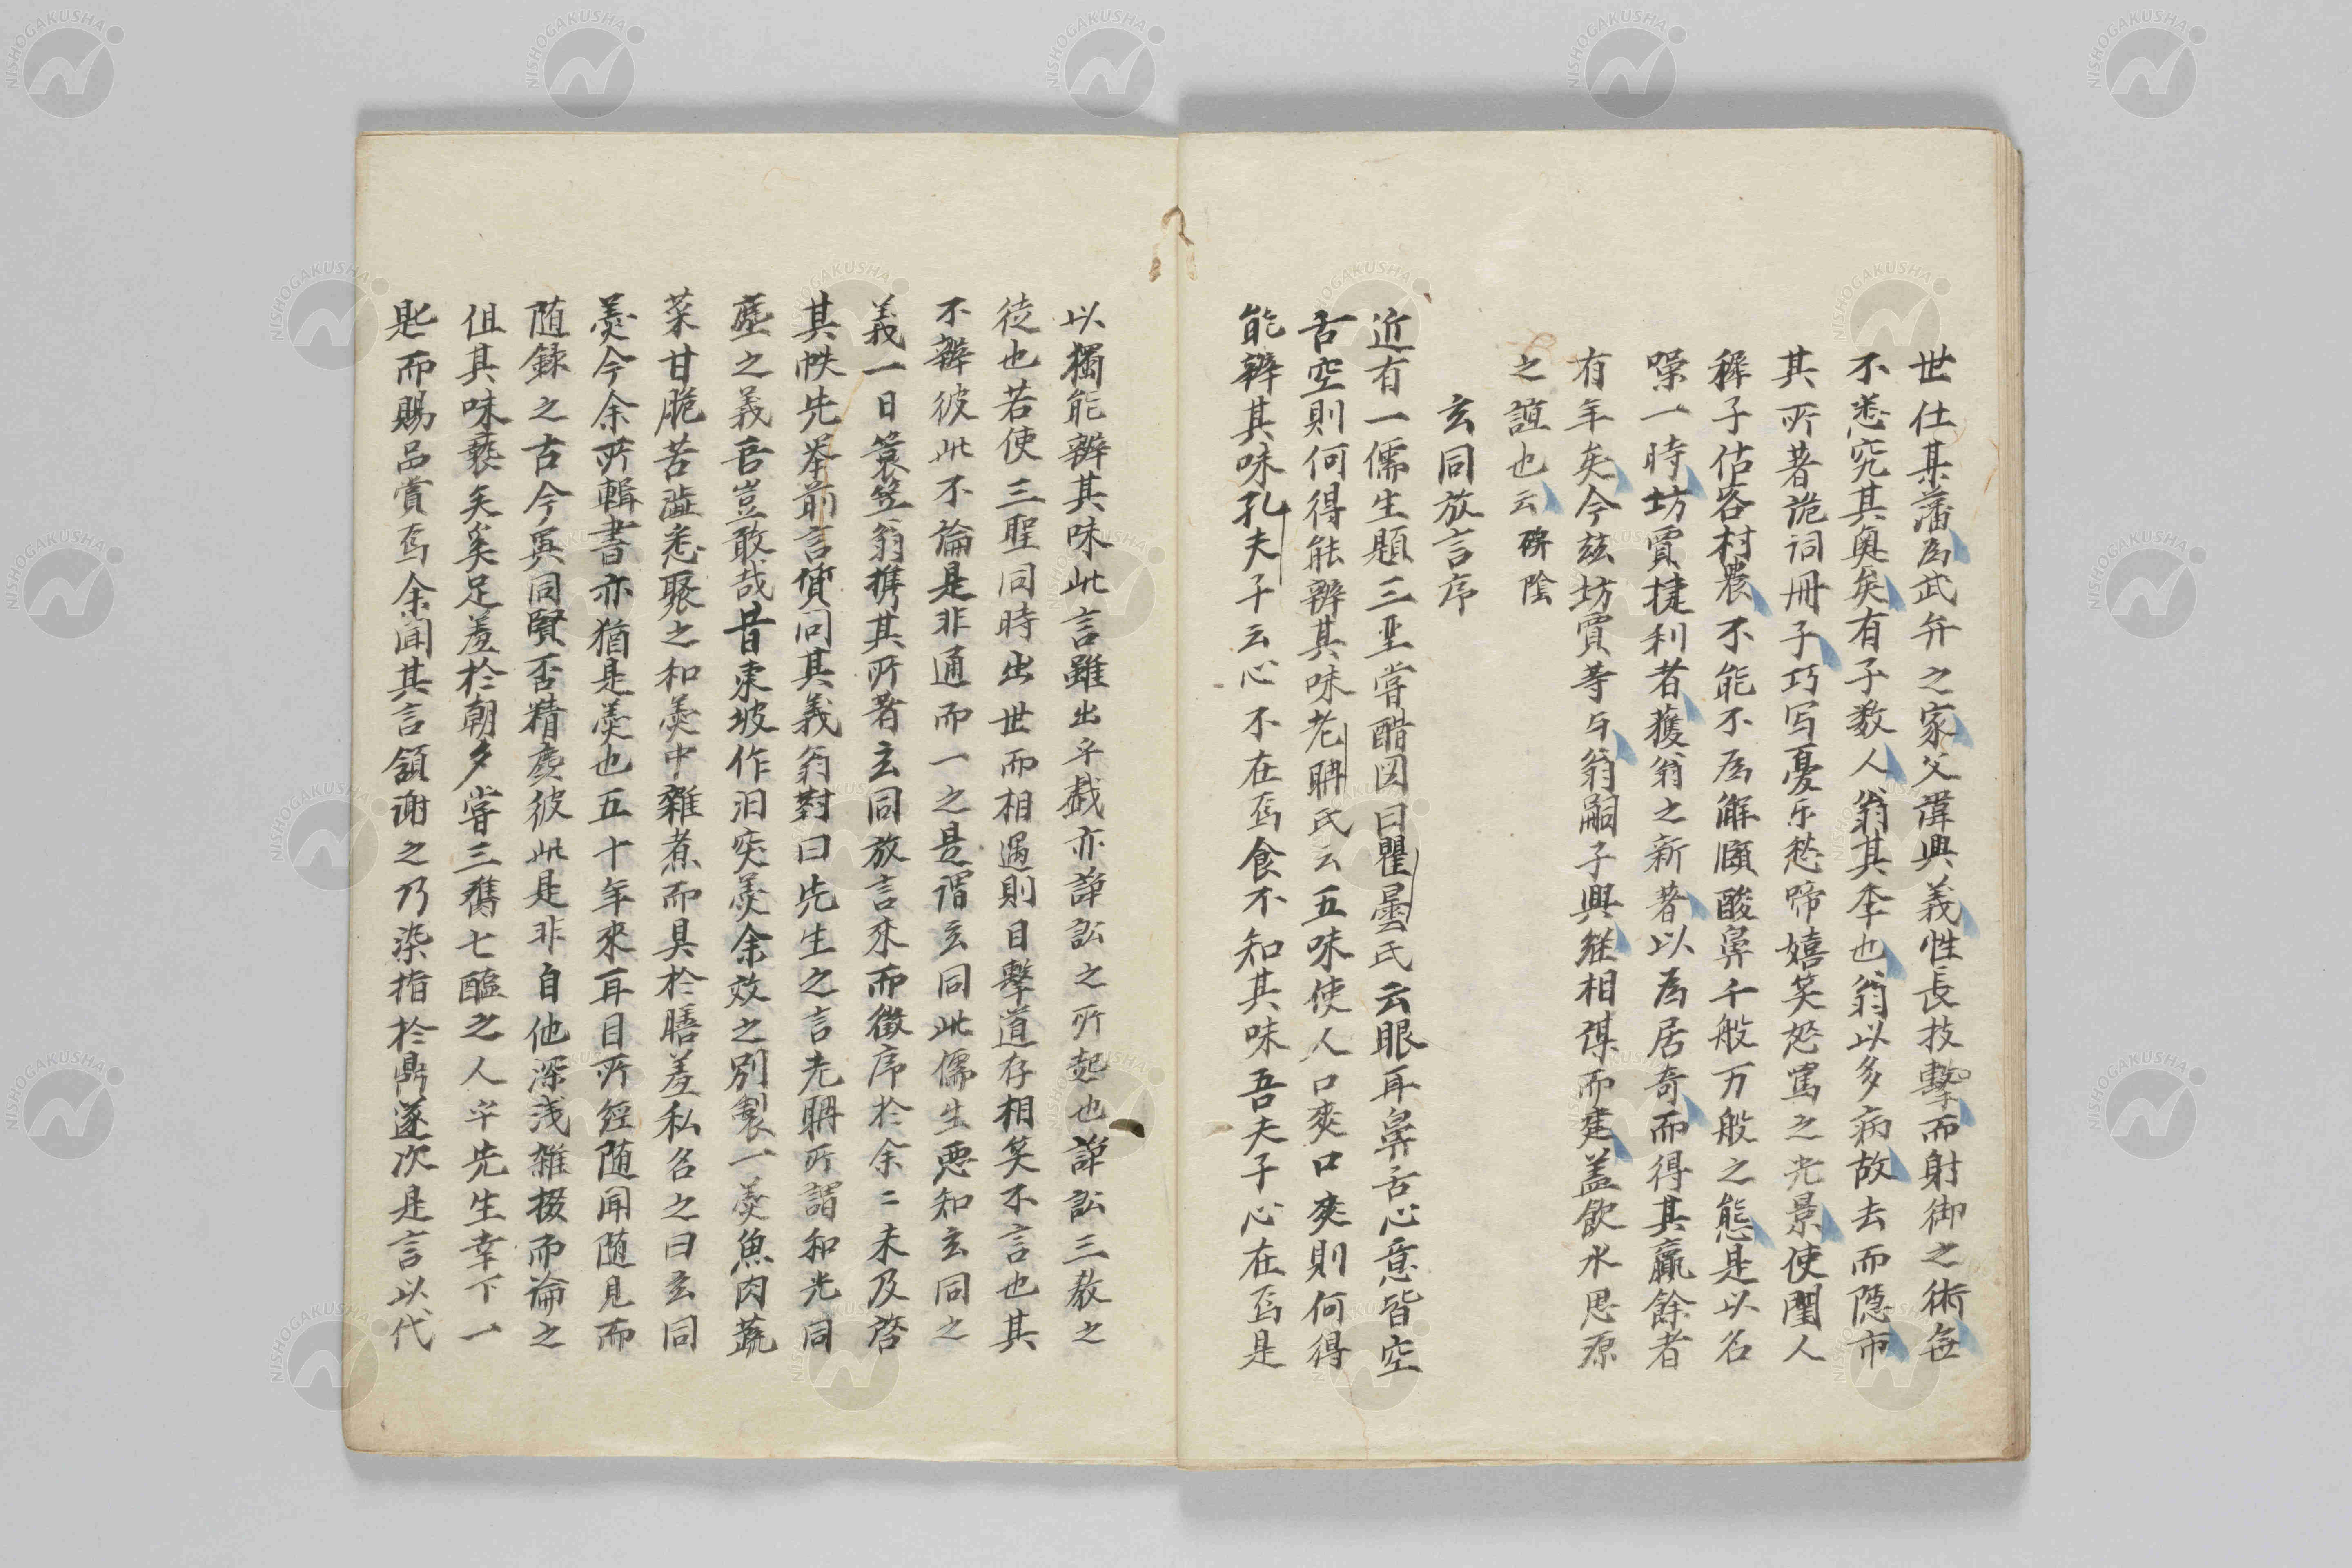 世仕某藩為武弁之家父諱興義性長技擊而射御之術無
不悉究其奧矣有子数人翁其季也翁以多病故去而隠市
其所著詭詞冊子巧写憂乐愁啼嬉笑怒罵之光景使閨人
穉子估客村農不能不為解頤酸鼻千般万般之態是以名
噪一時坊賈捷利者獲翁之新著以為居奇而得其贏餘者
有年矣今茲坊賈等与翁嗣子興継相謀而建盖飲水思源
之誼也云 碑陰
玄同放言序
近有一儒生題三聖嘗醋図曰瞿曇氏云眼耳鼻舌心意皆空
舌空則何得能辨其味老聃氏云五味使人口爽口爽則何得
能辨其味孔夫子云心不在焉食不知其味吾夫子心在焉是
以獨能辨其味此言雖出乎戯亦諍訟之所起也諍訟三教之
徒也若使三聖同時出世而相遇則目擊道存相笑不言也其
不辨彼此不論是非通而一之是謂玄同此儒生悪知玄同之
義一日簑笠翁携其所著玄同放言来而徴序於余二未及啓
其帙先举前言質问其義翁對曰先生之言老聃所謂和光同
塵之義吾豈敢哉昔東坡作汨突羹余效之別製一羹魚肉蔬
菜甘脆苦澁悉聚之和羹中雜煮而具於膳羞私名之曰玄同
羹今余所輯書亦猶是羹也五十年來耳目所経随聞随見而
随錄之古今異同賢否精麄彼此是非自他深浅雑掇而論之
但其味褻矣奚足羞於朝夕嘗三雋七醢之人乎先生幸下一
匙而賜品賞焉余聞其言頷谢之乃染指於鼎遂次是言以代